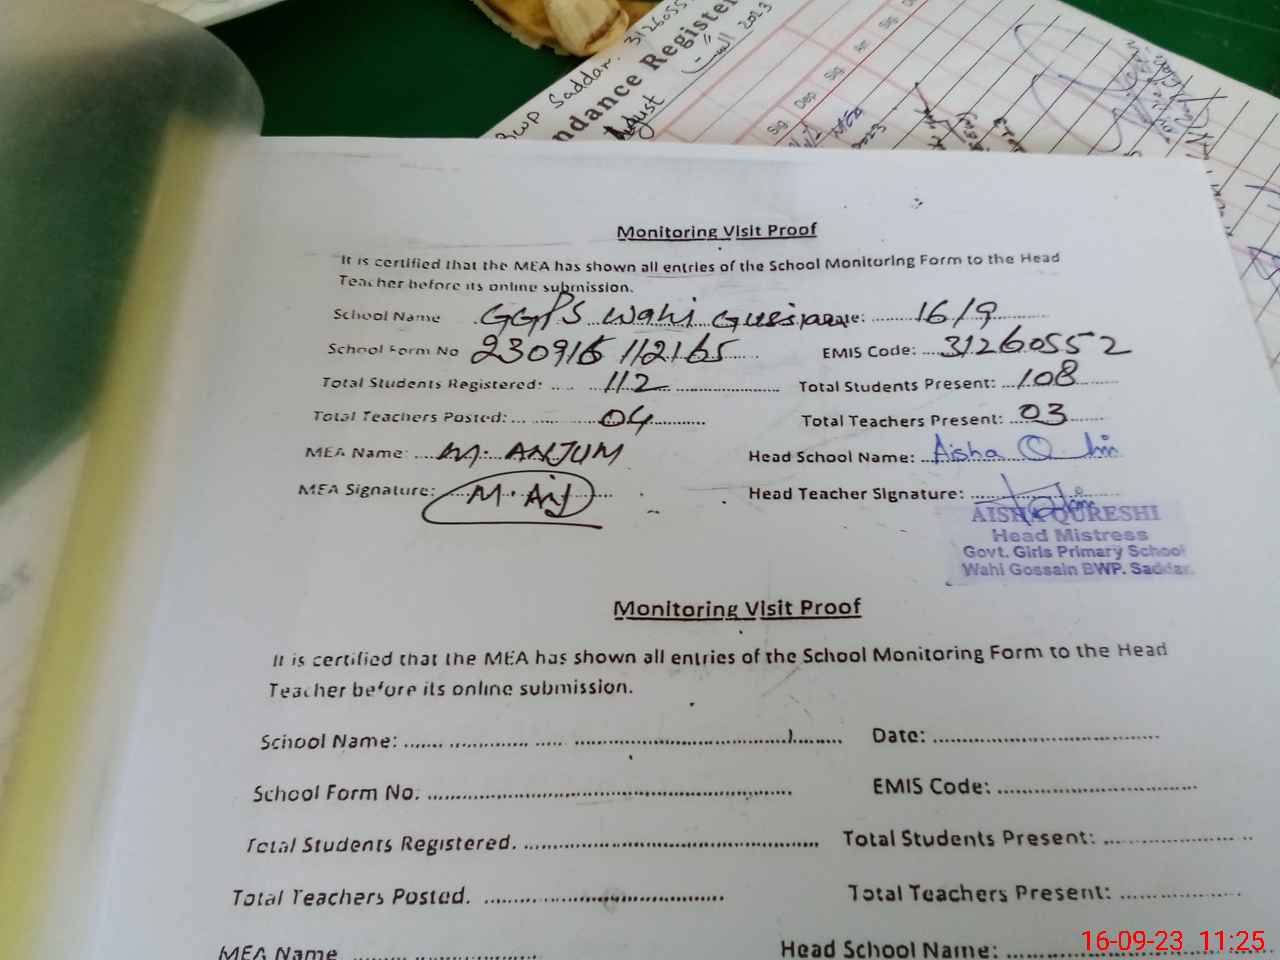 BWP Saddar. 3126055
ndance Register
August
2023
Sig Dep Sig Arr Sig De
Monitoring Visit Proof
It is certified that the MEA has shown all entries of the School Monitoring Form to the Head
Teacher before its online submission.
School Name GGPS Wahi Gussian Date: 16/9
School Form No 230916 112165 EMIS Code: 31260552
Total Students Registered: 112 Total Students Present: 108
Total Teachers Posted: 04 Total Teachers Present: 03
MEA Name: M. ANJUM Head School Name: Aisha
MEA Signature: Head Teacher Signature:
AISHA QURESHI
Head Mistress
Govt. Girls Primary School
Wahi Gossain BWP. Saddar.
Monitoring Visit Proof
It is certified that the MEA has shown all entries of the School Monitoring Form to the Head
Teacher before its online submission.
School Name: Date:
School Form No: EMIS Code:
Total Students Registered. Total Students Present:
Total Teachers Posted. Total Teachers Present:
MEA Name Head School Name:
16-09-23 11:25